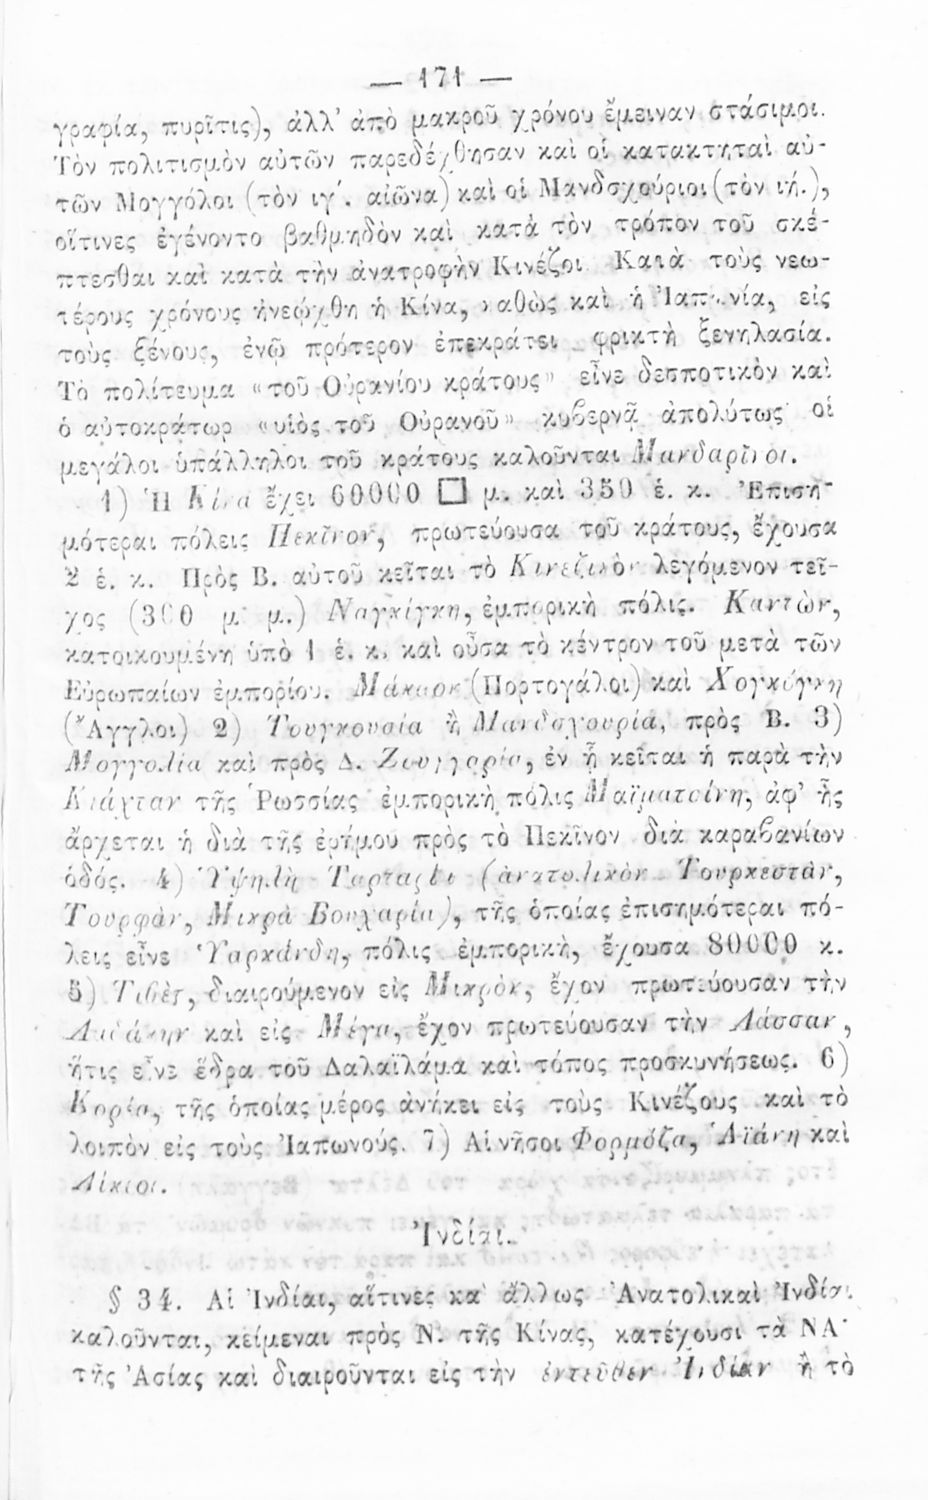 — 171 —
γραφία, πυρῖτις), ἀλλ’ ἀπὸ μακροῦ χρόνου ἔμειναν στάσιμοι.
Τὸν πολιτισμὸν αὐτῶν παρεδέχθησαν καὶ οἱ κατακτηταὶ αὐ-
τῶν Μογγόλοι (τὸν ιγ΄. αἰῶνα) καὶ οἱ Μανδσχούριοι (τὸν ιή.),
οἵτινες ἐγένοντο βαθμηδὸν καὶ κατὰ τὸν τρόπον τοῦ σκέ-
πτεσθαι καὶ κατὰ τὴν ἀνατροφὴν Κινέζοι. Κατὰ τοὺς νεω-
τέρους χρόνους ἠνεῴχθη ἡ Κίνα, καθὼς καὶ ἡ Ἰαπωνία, εἰς
τοὺς ξένους, ἐνῷ πρότερον ἐπεκράτει φρικτὴ ξενηλασία.
Τὸ πολίτευμα «τοῦ Οὐρανίου κράτους» εἶνε δεσποτικὸν καὶ
ὁ αὐτοκράτωρ «υἱὸς τοῦ Οὐρανοῦ» κυβερνᾷ ἀπολύτως· οἱ
μεγάλοι ὑπάλληλοι τοῦ κράτους καλοῦνται Μανδαρῖνοι.
1) Ἡ Κίνα ἔχει 60000 □ μ. καὶ 350 ἑ. κ. Ἐπιση-
μότεραι πόλεις Πεκῖνον, πρωτεύουσα τοῦ κράτους, ἔχουσα
2 ἑ. κ. Πρὸς Β. αὐτοῦ κεῖται τὸ Κινεζικὸν λεγόμενον τεῖ-
χος (300 μ. μ.) Ναγκίγκη, ἐμπορικὴ πόλις. Καντὼν,
κατοικουμένη ὑπὸ 1 ἑ. κ. καὶ οὖσα τὸ κέντρον τοῦ μετὰ τῶν
Εὐρωπαίων ἐμπορίου. Μάκαον (Πορτογάλοι) καὶ Χογκόγκη
(Ἄγγλοι) 2) Τουγκουσία ἢ Μανδσχουρία, πρὸς Β. 3)
Μογγολία καὶ πρὸς Δ. Ζουγγαρία, ἐν ᾗ κεῖται ἡ παρὰ τὴν
Κιάχταν τῆς Ῥωσσίας ἐμπορικὴ πόλις Μαϊματσίνη, ἀφ’ ἧς
ἄρχεται ἡ διὰ τῆς ἐρήμου πρὸς τὸ Πεκῖνον διὰ καραβανίων
ὁδός. 4) Ὑψηλὴ Ταρταρία (ἀνατολικὸν Τουρκεστὰν,
Τουρφὰν, Μικρὰ Βουχαρία), τῆς ὁποίας ἐπισημότεραι πό-
λεις εἶνε Ὑαρκάνδη, πόλις ἐμπορικὴ, ἔχουσα 80000 κ.
5) Τιβὲτ, διαιρούμενον εἰς Μικρὸν, ἔχον πρωτεύουσαν τὴν
καὶ εἰς Μέγα, ἔχον πρωτεύουσαν τὴν Λάσσαν,
ἥτις εἶνε ἕδρα τοῦ Δαλαϊλάμα καὶ τόπος προσκυνήσεως. 6)
Κορέα, τῆς ὁποίας μέρος ἀνήκει εἰς τοὺς Κινέζους καὶ τὸ
λοιπὸν εἰς τοὺς Ἰαπωνούς. 7) Αἱ νῆσοι Φορμόζα, Ἁϊάνη καὶ
Λίκιοι.
Ἰνδίαι.
§ 34. Αἱ Ἰνδίαι, αἵτινες καὶ ἄλλως Ἀνατολικαὶ Ἰνδίαι
καλοῦνται, κείμεναι πρὸς Ν. τῆς Κίνας, κατέχουσι τὰ ΝΑ·
τῆς Ἀσίας καὶ διαιροῦνται εἰς τὴν ἐντεῦθεν Ἰνδίαν ἢ τὸ